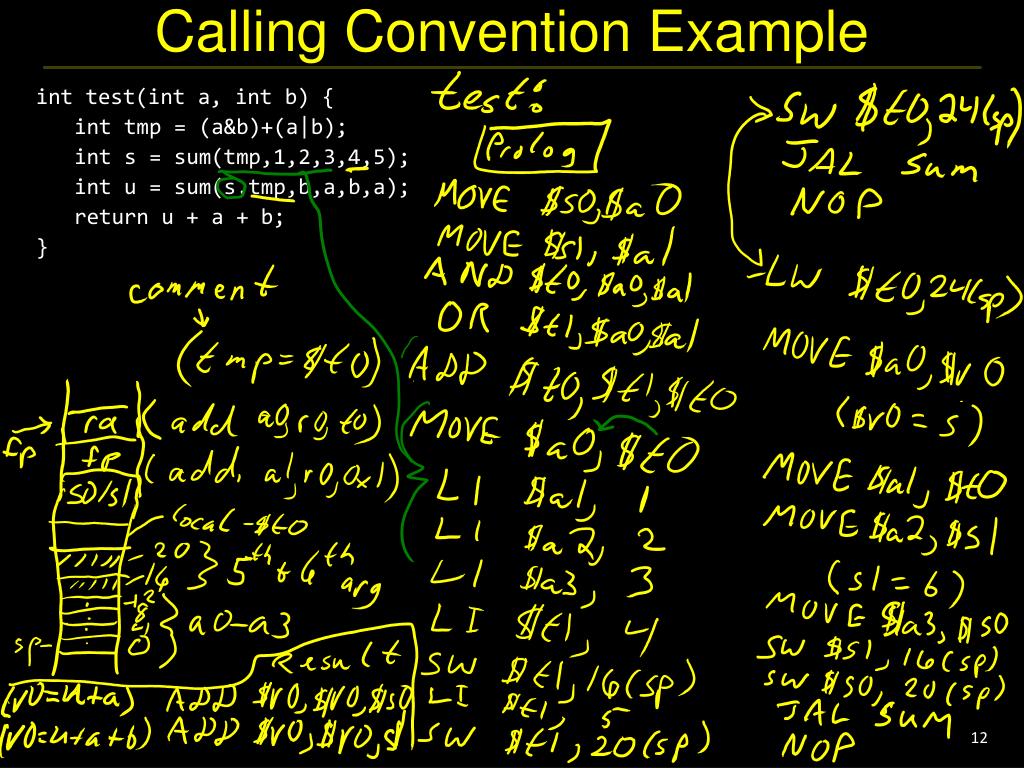 Calling Convention Example
int test(int a, int b) {
int tmp = (a&b)+(a|b);
int s = sum(tmp,1,2,3,4,5);
int u = sum(s,tmp,b,a,b,a);
return u + a + b;
}
comment
(tmp=$t0)
(add a0,r0,t0)
(add a1,r0,0x1)
fp
ra
fp
s0/s1
local-$t0
20
16
5th + 6th arg
12
8
4
0
a0-a3
sp
test:
Prolog
MOVE $s0,$a0
MOVE $s1, $a1
AND $t0, $a0,$a1
OR $t1,$a0,$a1
ADD $t0,$t1,$t0
MOVE $a0, $t0
LI $a1, 1
LI $a2, 2
LI $a3, 3
LI $t1, 4
SW $t1,16(sp)
LI $t1, 5
SW $t1,20(sp)
SW $t0,24(sp)
JAL sum
NOP
LW $t0,24(sp)
MOVE $a0,$v0
($v0 = s)
MOVE $a1, $t0
MOVE $a2,$s1
(s1 = b)
MOVE $a3,$s0
SW $s1, 16(sp)
SW $s0, 20(sp)
JAL SUM
NOP
Result
(v0=u+a) ADD $v0,$v0,$s0
(v0=u+a+b) ADD $v0,$v0,s1
12